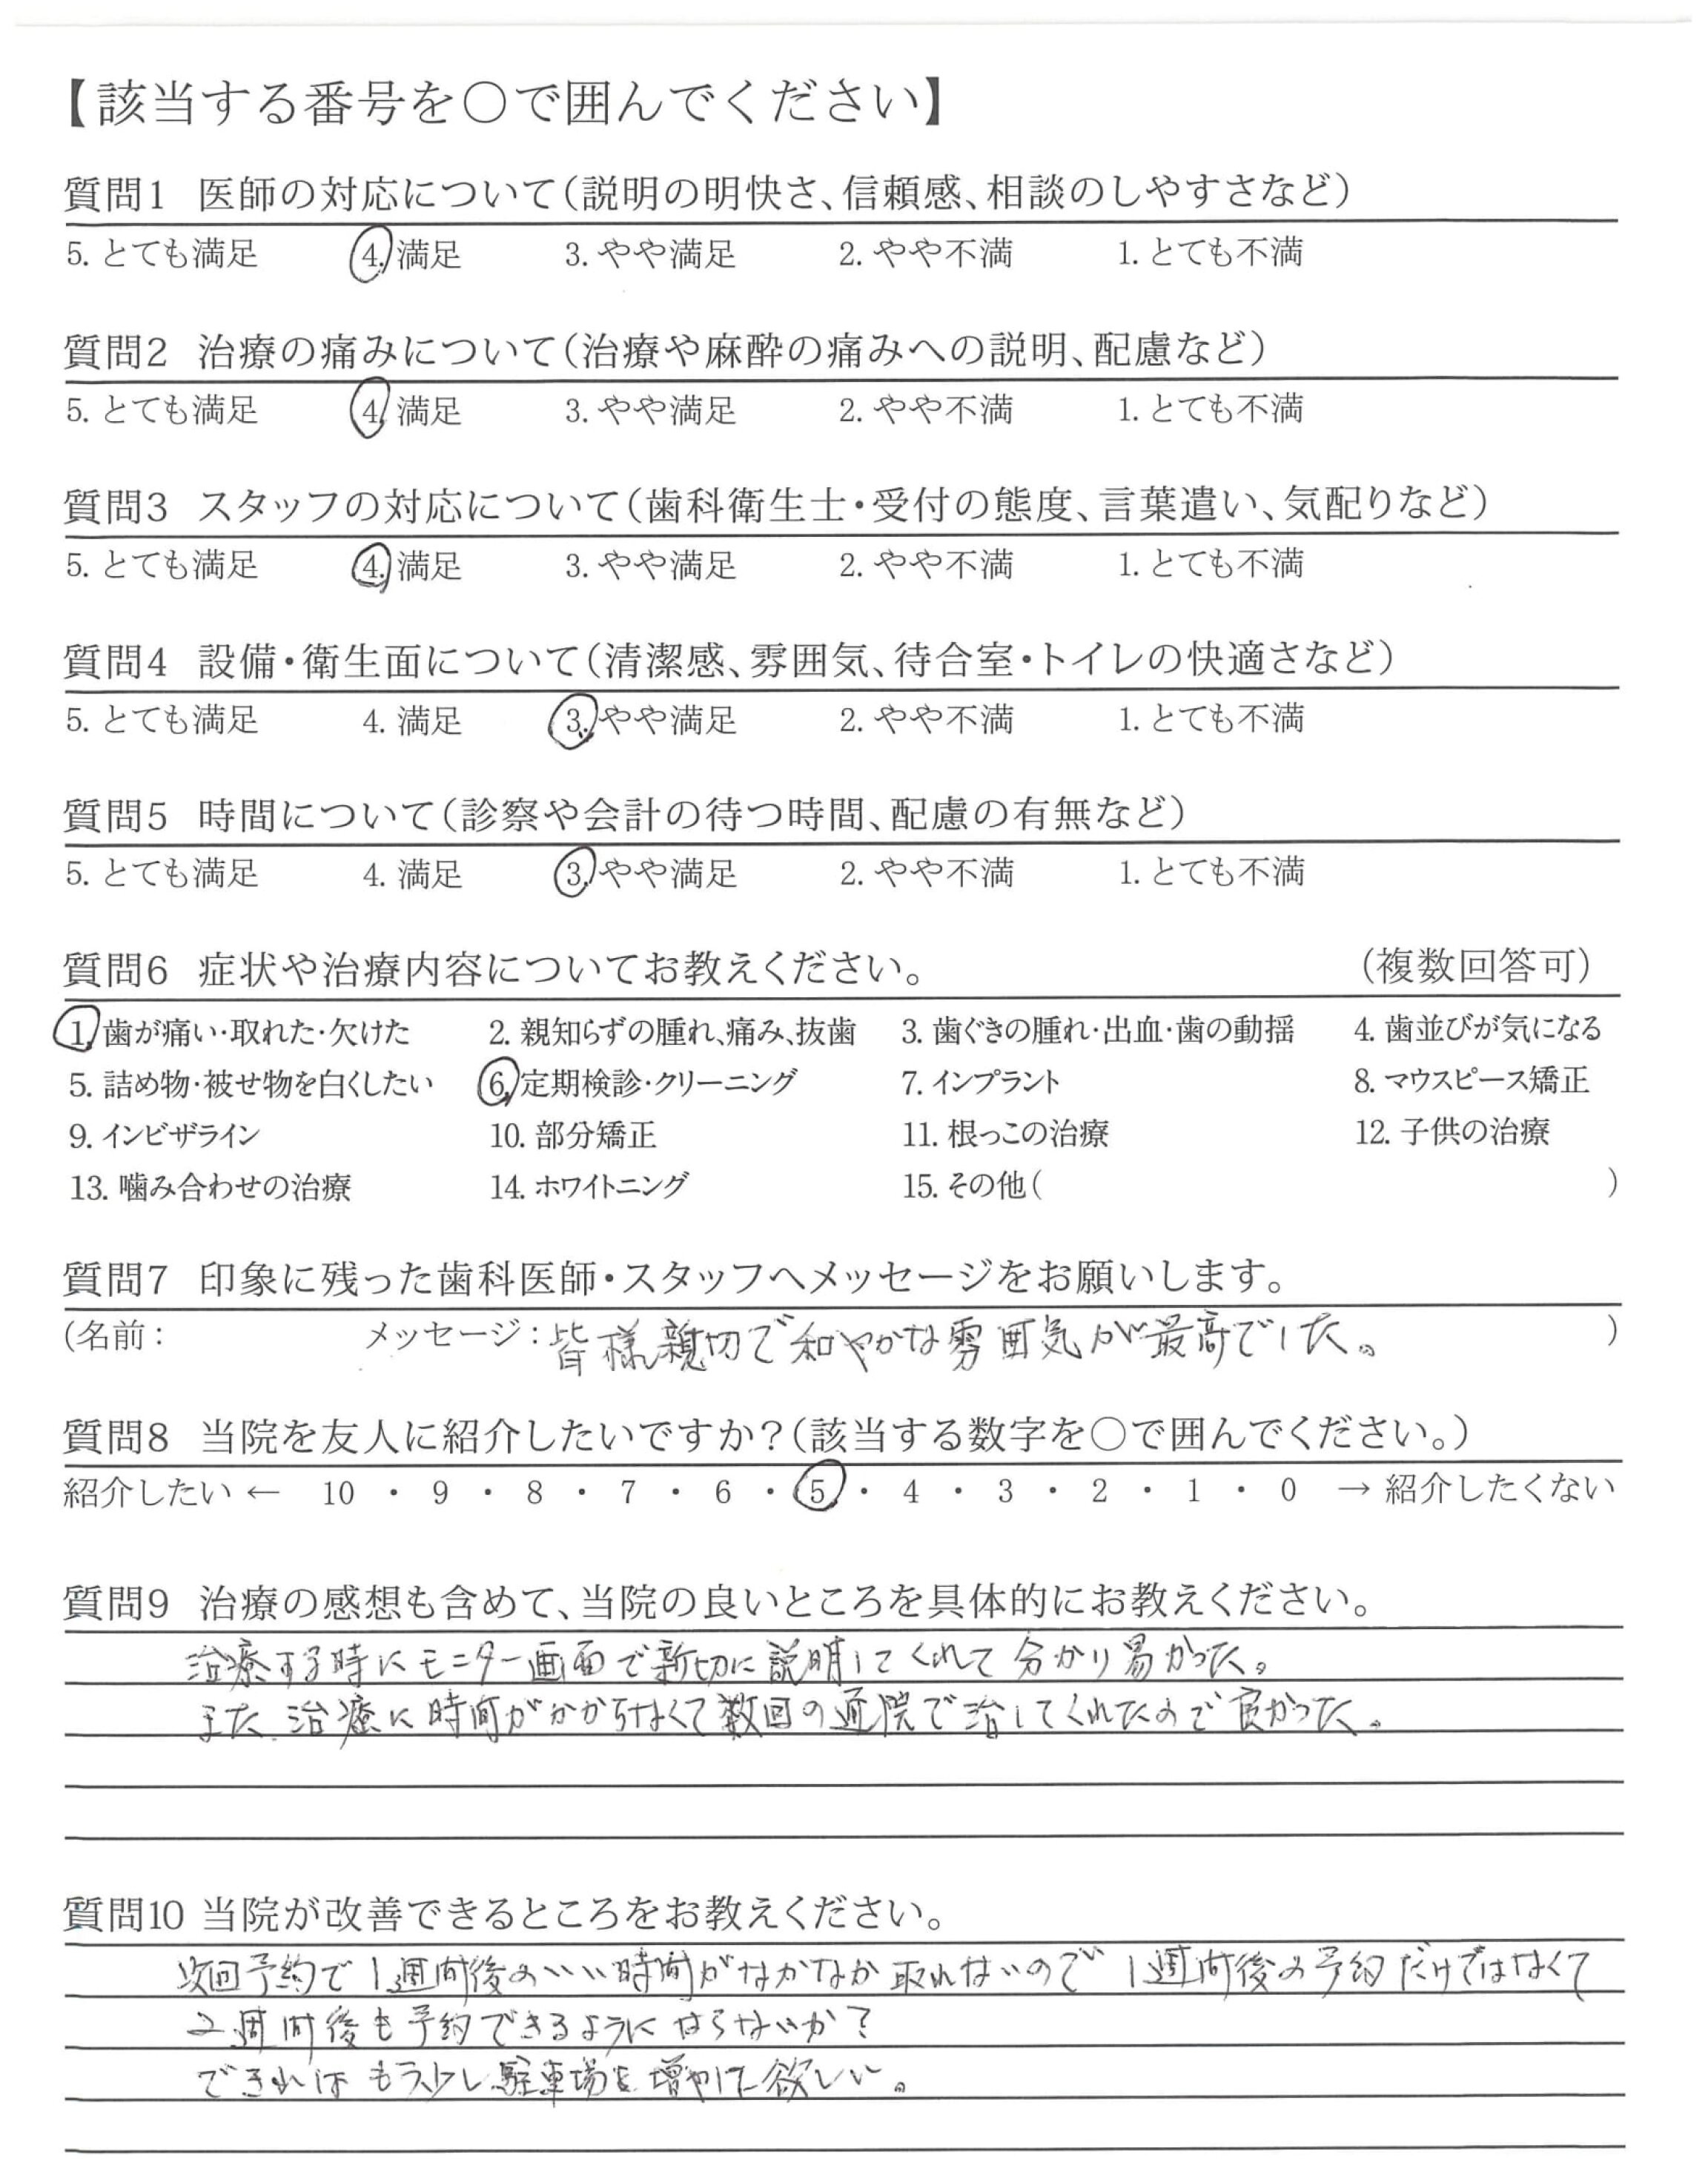 【該当する番号を〇で囲んでください】
質問1 医師の対応について(説明の明快さ、信頼感、相談のしやすさなど)
5. とても満足 4. 満足 3. やや満足 2. やや不満 1. とても不満
質問2 治療の痛みについて(治療や麻酔の痛みへの説明、配慮など)
5. とても満足 4. 満足 3. やや満足 2. やや不満 1. とても不満
質問3 スタッフの対応について(歯科衛生士・受付の態度、言葉遣い、気配りなど)
5. とても満足 4. 満足 3. やや満足 2. やや不満 1. とても不満
質問4 設備・衛生面について(清潔感、雰囲気、待合室・トイレの快適さなど)
5. とても満足 4. 満足 3. やや満足 2. やや不満 1. とても不満
質問5 時間について(診察や会計の待つ時間、配慮の有無など)
5. とても満足 4. 満足 3. やや満足 2. やや不満 1. とても不満
質問6 症状や治療内容についてお教えください。 (複数回答可)
1. 歯が痛い・取れた・欠けた 2. 親知らずの腫れ、痛み、抜歯 3. 歯ぐきの腫れ・出血・歯の動揺 4. 歯並びが気になる
5. 詰め物・被せ物を白くしたい 6. 定期検診・クリーニング 7. インプラント 8. マウスピース矯正
9. インビザライン 10. 部分矯正 11. 根っこの治療 12. 子供の治療
13. 噛み合わせの治療 14. ホワイトニング 15. その他( )
質問7 印象に残った歯科医師・スタッフへメッセージをお願いします。
(名前: メッセージ:皆様親切で和やかな雰囲気が最高でした。 )
質問8 当院を友人に紹介したいですか?(該当する数字を〇で囲んでください。)
紹介したい ← 10 ・ 9 ・ 8 ・ 7 ・ 6 ・ 5 ・ 4 ・ 3 ・ 2 ・ 1 ・ 0 → 紹介したくない
質問9 治療の感想も含めて、当院の良いところを具体的にお教えください。
治療する時にモニター画面で親切に説明してくれて分かり易かった。
また、治療に時間がかからなくて数回の通院で治してくれたので良かった。
質問10 当院が改善できるところをお教えください。
次回予約で1週間後のいい時間がなかなか取れないので1週間後の予約だけではなくて
2週間後も予約できるようにならないか?
できればもう少し駐車場を増やして欲しい。